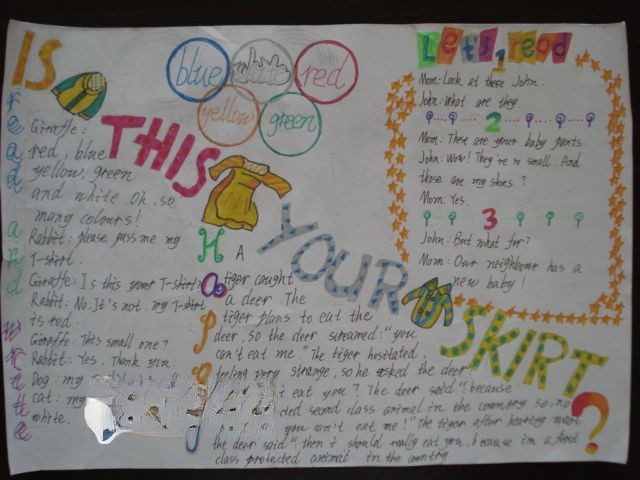 IS
THIS
YOUR
SKIRT
?
blue
white
red
yellow
green
Let's read
1
Mom: Look at these John.
John: What are they
2
Mom: These are your baby pants.
John: Wow! They're so small. And
those are my shoes?
Mom: Yes.
3
John: But what for?
Mom: Our neighbour has a
new baby!
read and write
Giraffe:
red, blue
yellow, green
and white. Oh, so
many colours!
Rabbit: please pass me my
T-shirt.
Giraffe: Is this your T-shirt?
Rabbit: No. It's not. my T-shirt
is red.
Giraffe: This small one?
Rabbit: Yes, Thank you.
Dog: my
cat: my
white.
Happy
A
tiger caught
a deer. The
tiger plans to eat the
deer, so the deer screamed: "you
can't eat me." The tiger hesitated
feeling very strange, so he asked the deer:
eat you? The deer said: "because
second class animal in the country so, no
you can't eat me!" The tiger after hearing
the deer said: "then i should really eat you, because im a first
class protected animal in the country